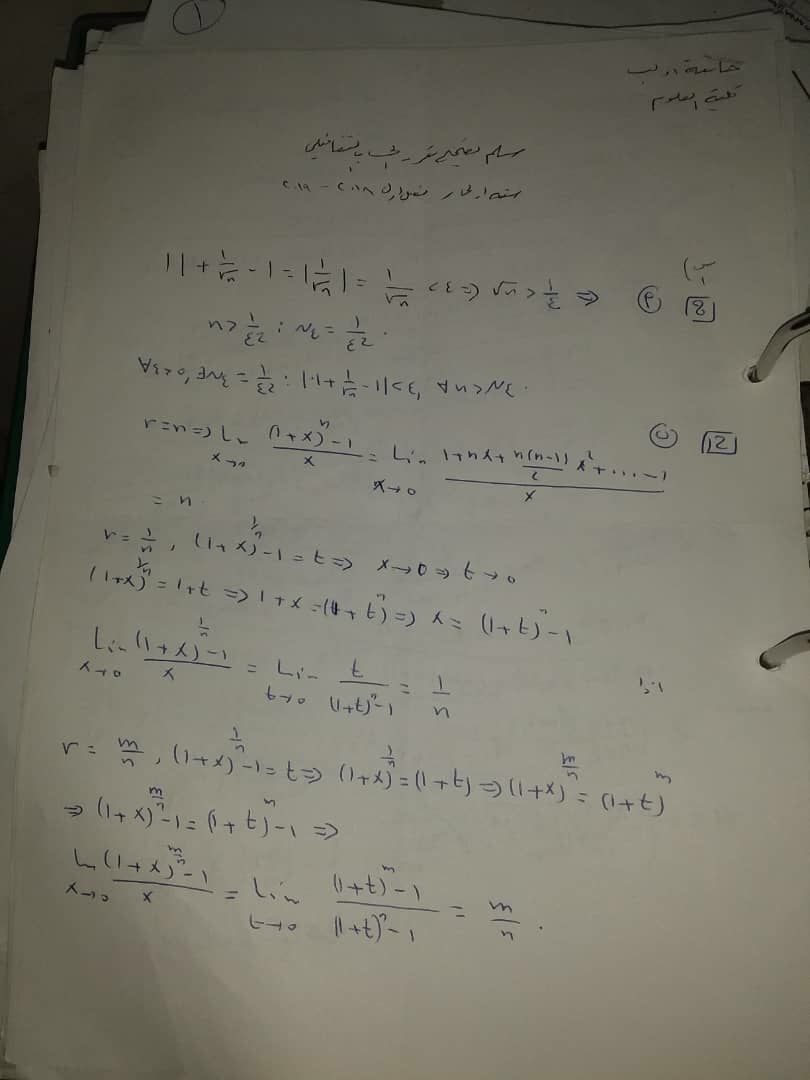 ١
جامعة ادلب
كلية العلوم
سلم تصحيح مقرر
سنة اولى ٢٠١٨ - ٢٠١٩
س١)
[8] (P) |1 + 1/√n - 1| = |1/√n| = 1/√n < ε ⇒ √n > 1/ε ⇒
n > 1/ε² ; N_ε = 1/ε² .
∀ε>0, ∃N_ε = 1/ε² : |1 + 1/√n - 1| < ε, ∀n > N_ε .
[12] (ب) r=n ⇒ Lim_{x→0} ((1+x)^n - 1)/x = Lim_{x→0} (1+nx+ n(n-1)/2 x² + ... - 1)/x
= n .
r = 1/n , (1+x)^{1/n} - 1 = t ⇒ x→0 ⇒ t→0
(1+x)^{1/n} = 1+t ⇒ 1+x = (1+t)^n ⇒ x = (1+t)^n - 1
Lim_{x→0} ((1+x)^{1/n} - 1)/x = Lim_{t→0} t/((1+t)^n - 1) = 1/n
r = m/n , (1+x)^{1/n} - 1 = t ⇒ (1+x)^{1/n} = (1+t) ⇒ (1+x)^{m/n} = (1+t)^m
⇒ (1+x)^{m/n} - 1 = (1+t)^m - 1 ⇒
Lim_{x→0} ((1+x)^{m/n} - 1)/x = Lim_{t→0} ((1+t)^m - 1)/((1+t)^n - 1) = m/n .